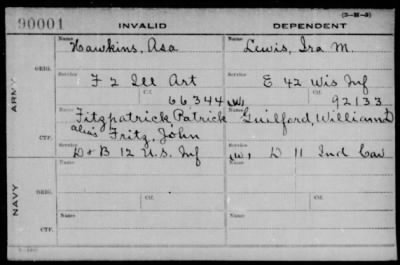 (3-M-3)
90001 INVALID DEPENDENT
Name Name
Hawkins, Asa Lewis, Ira M.
ORIG.
Service Service
F 2 Ill Art E 42 Wis Inf
Ctf. Ctf.
66,344 (W) 92133
ARMY
Name Name
Fitzpatrick Patrick Guilford, William D
alias Fritz, John
CTF.
Service Service
D & B 12 U.S. Inf (W) D 11 Ind Cav
Name Name
ORIG.
Service Ctf. Service Ctf.
NAVY
Name Name
CTF.
Service Service